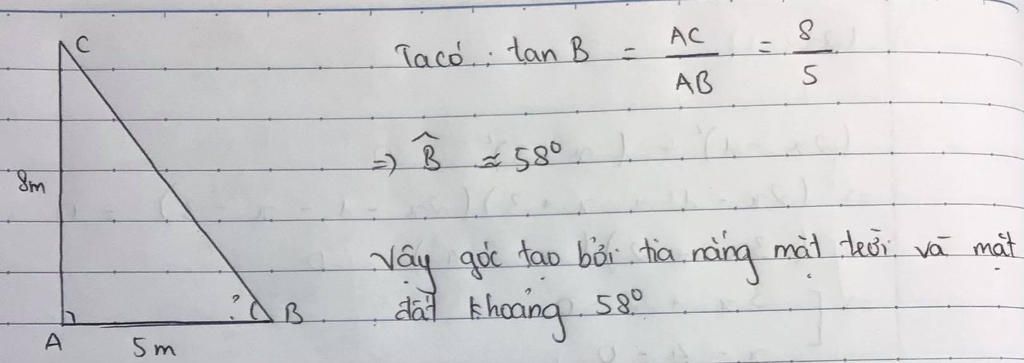 C
Ta có : tan B = AC/AB = 8/5
8m
=> B̂ ≈ 58°
Vậy góc tạo bởi tia nắng mặt trời và mặt
đất khoảng 58°
?
B
A
5m